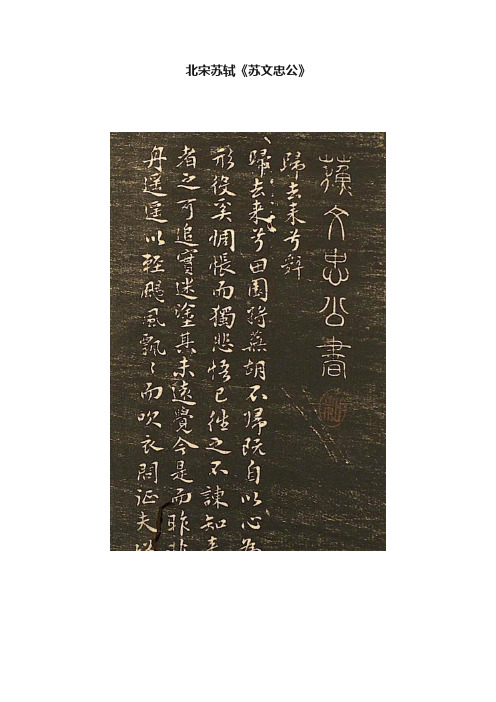 北宋苏轼《苏文忠公》
蘇文忠公書
歸去来兮辭
歸去来兮田園將蕪胡不歸既自以心為
形役奚惆悵而獨悲悟已往之不諫知来
者之可追實迷塗其未遠覺今是而昨非
舟遥遥以輕颺風飄〻而吹衣問征夫以